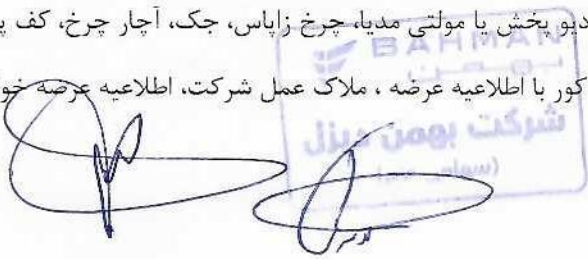 دیو پخش یا مولتی مدیا، چرخ زاپاس، جک، آچار چرخ، کف پ
کور با اطلاعیه عرضه ، ملاک عمل شرکت، اطلاعیه عرضه خو
BAHMAN
بهمن
شرکت بهمن دیزل
(سهامی